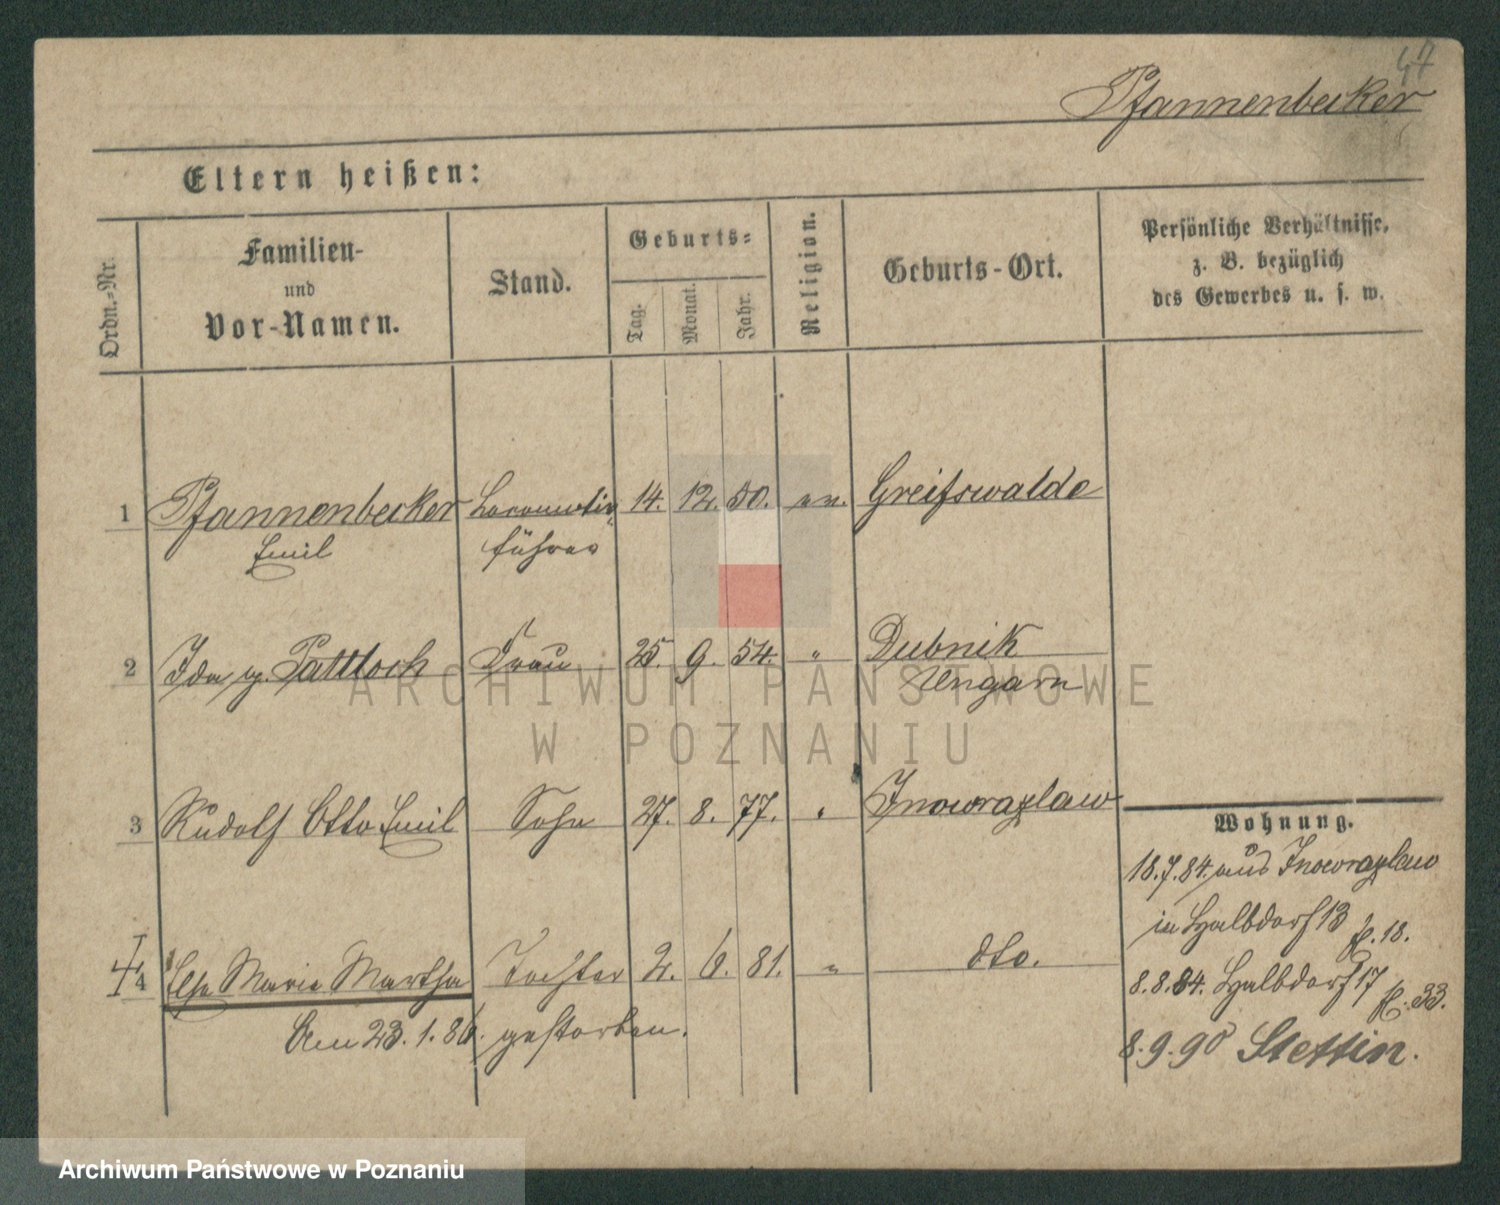 47
Pfannenbecker
Eltern heißen:
Ordn.-Nr.
Familien-
und
Vor-Namen.
Stand.
Geburts-
Tag.
Monat.
Jahr.
Religion.
Geburts-Ort.
Persönliche Verhältnisse,
z. B. bezüglich
des Gewerbes u. s. w.
1 Pfannenbecker Locomotiv 14. 12. 50. ev. Greifswalde
Emil führer
2 Ida g. Pattloch Frau 25. 9. 54. " Dubnik
Ungarn
ARCHIWUM PAŃSTWOWE
W POZNANIU
3 Rudolf Otto Emil Sohn 27. 8. 77. " Inowrazlaw
Wohnung.
18.7.84. aus Inowrazlaw
in Halbdorf 13 f. 18.
4 Else Marie Martha Tochter 2. 6. 81. " dto.
8.8.84. Halbdorf 17 f. 33.
Am 23.1.86. gestorben.
8.9.90 Stettin.
Archiwum Państwowe w Poznaniu